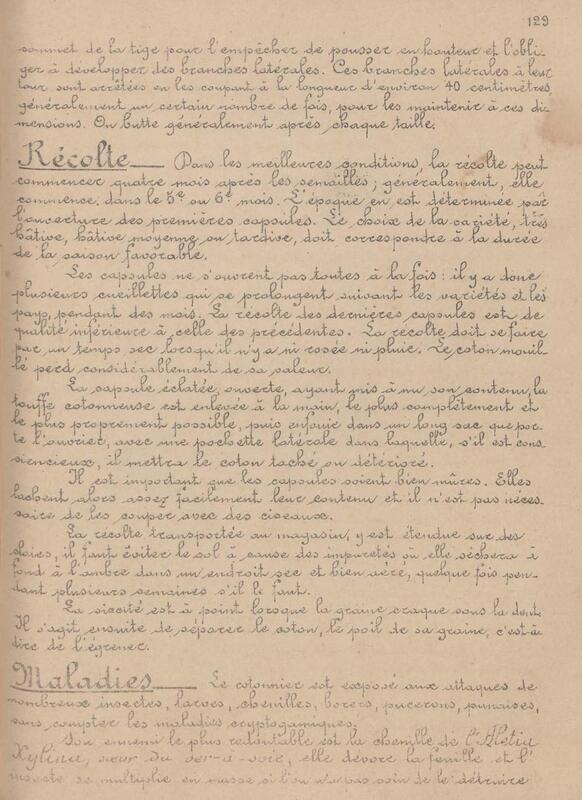 129
sommet de la tige pour l'empêcher de pousser en hauteur et l'obli-
ger à développer des branches latérales. Ces branches latérales à leur
tour sont arrêtées en les coupant à la longueur d'environ 40 centimètres,
généralement un certain nombre de fois, pour les maintenir à ces di-
mensions. On butte généralement après chaque taille.
Récolte Dans les meilleures conditions, la récolte peut
commencer quatre mois après les semailles ; généralement, elle
commence, dans le 5e ou 6e mois. L'époque en est déterminée par
l'ouverture des premières capsules. Le choix de la variété, très
hâtive, hâtive moyenne ou tardive, doit correspondre à la durée
de la saison favorable.
Les capsules ne s'ouvrent pas toutes à la fois : il y a donc
plusieurs cueillettes qui se prolongent suivant les variétés et les
pays, pendant des mois. La récolte des dernières capsules est de
qualité inférieure à celle des précédentes. La récolte doit se faire
par un temps sec lorsqu'il n'y a ni rosée ni pluie. Le coton mouil-
lé perd considérablement de sa valeur.
La capsule éclatée, ouverte, ayant mis à nu son contenu, la
touffe cotonneuse est enlevée à la main, le plus complètement et
le plus proprement possible, puis enfouie dans un long sac que por-
te l'ouvrier, avec une pochette latérale dans laquelle, s'il est cons-
siencieux, il mettra le coton taché ou détérioré.
Il est important que les capsules soient bien mûres. Elles
lachent alors assez facilement leur contenu et il n'est pas néces-
saire de les couper avec des ciseaux.
La récolte transportée au magasin, y est étendue sur des
claies, il faut éviter le sol à cause des impuretés où elle sèchera à
fond à l'ombre dans un endroit sec et bien aéré, quelque fois pen-
dant plusieurs semaines s'il le faut.
La siccité est à point lorsque la graine craque sous la dent.
Il s'agit ensuite de séparer le coton, le poil de sa graine, c'est-à-
dire de l'égrener.
Maladies Le cotonnier est exposé aux attaques de
nombreux insectes, larves, chenilles, borers, pucerons, punaises,
sans compter les maladies cryptogamiques.
Son ennemi le plus redoutable est la chenille de l'Aletia
Xylina, sœur du ver-à-soie, elle dévore la feuille et l'
insecte se multiplie en masse si l'on n'a pas soin de le détruire